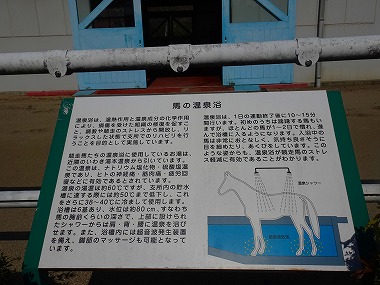 馬の温泉浴
温泉浴は、温熱作用と温泉成分の化学作用
により、損傷を受けた組織の修復を促すこ
と、調教や競走のストレスから開放し、リ
ラックスした状態で支所でのリハビリを行
うことを目的として実施しています。
競走馬たちの温泉浴に使用しているお湯は、
近隣のいわき湯本温泉から引いています。
この温泉は、ナトリウム塩化物・硫酸塩温
泉であり、ヒトの神経痛・筋肉痛・疲労回
復などに有効であるとされています。
温泉の温度は約60℃ですが、支所内の貯水
槽に達する際には約50℃まで低下し、これ
をさらに38～40℃に冷まして使用します。
浴槽は6基あり、水位は約80cm、すなわち
馬の胸前くらいの深さで、上部に設けられ
たシャワーからは肩・背・腰に温泉を浴び
せます。また、浴槽内には超音波発生装置
を備え、脚部のマッサージも可能となって
います。
温泉浴は、1日の運動終了後に10～15分
間行います。初めのうちは躊躇する馬もい
ますが、ほとんどの馬が1～2日で慣れ、進
んで浴槽に入るようになります。入浴中の
馬は非常におとなしく、気持ち良さそうに
目を細めたり、あくびをしています。この
ような姿からも、温泉浴が競走馬のストレ
ス軽減に有効であることがわかります。
温泉シャワー